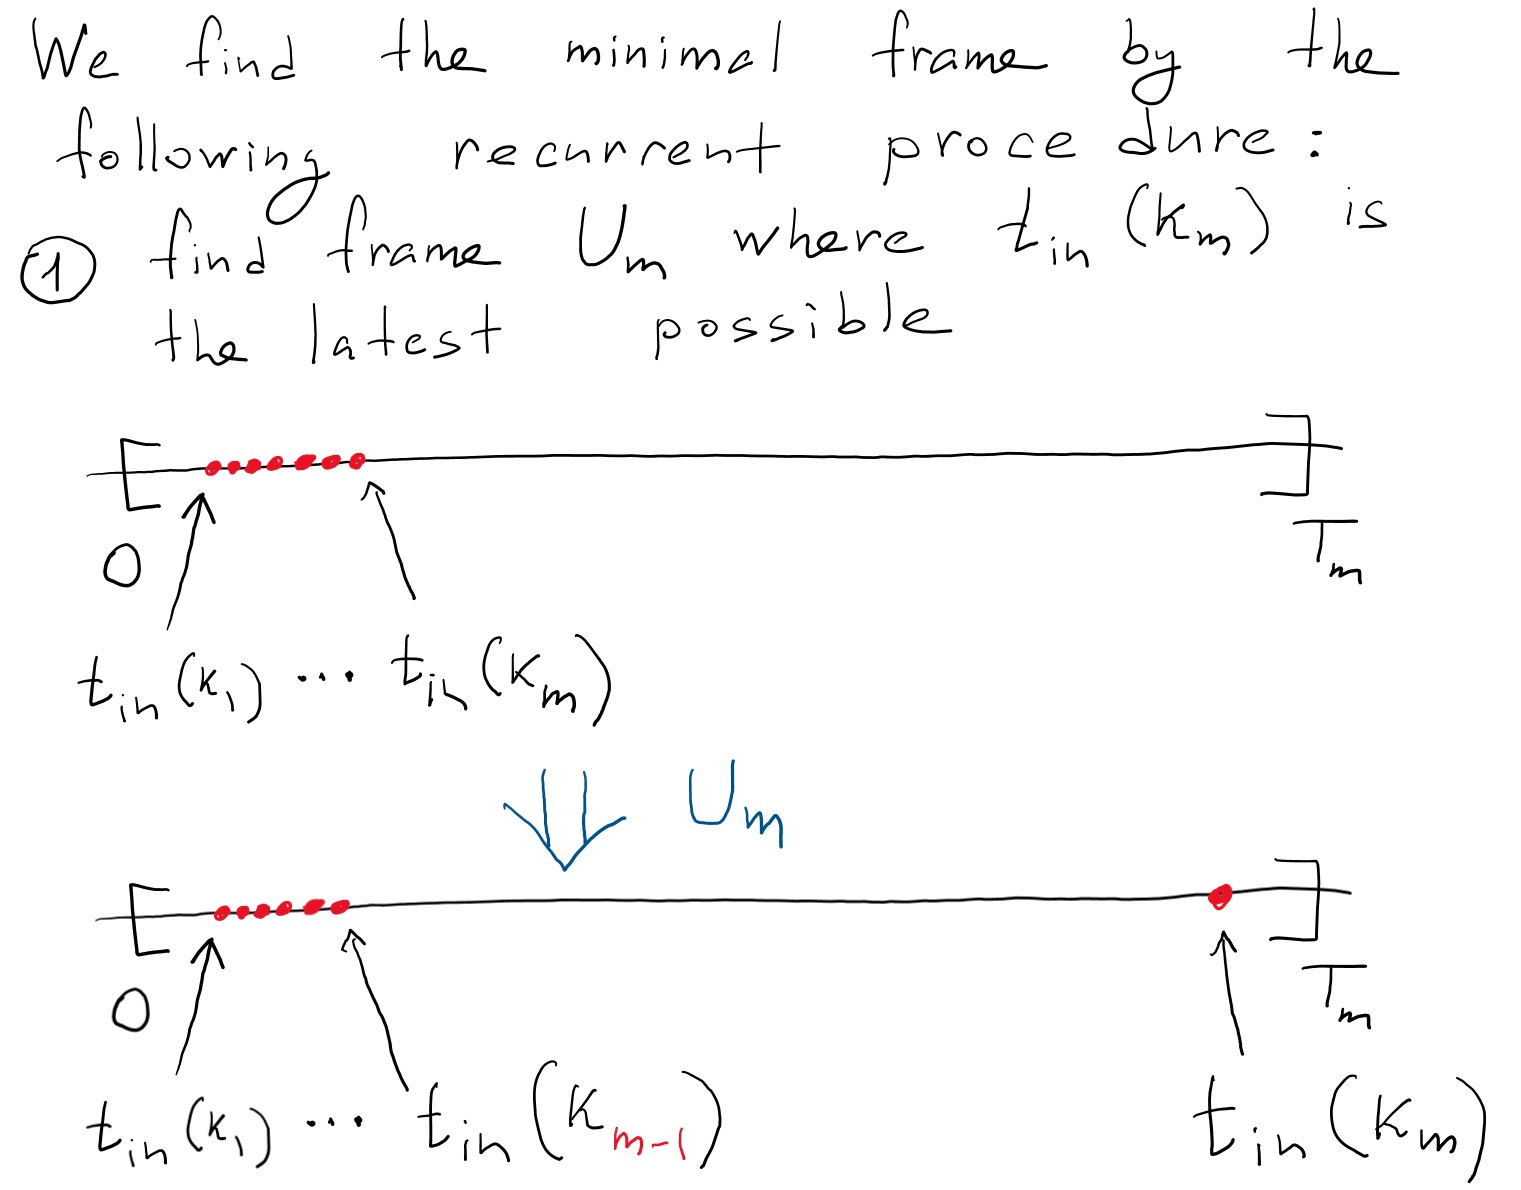 We find the minimal frame by the
following recurrent procedure:
① find frame Uₘ where t_in (Kₘ) is
the latest possible
[ ]
0 Tₘ
t_in (K₁) ... t_in (Kₘ)
⇓ Uₘ
[ ]
0 Tₘ
t_in (K₁) ... t_in (Kₘ₋₁) t_in (Kₘ)